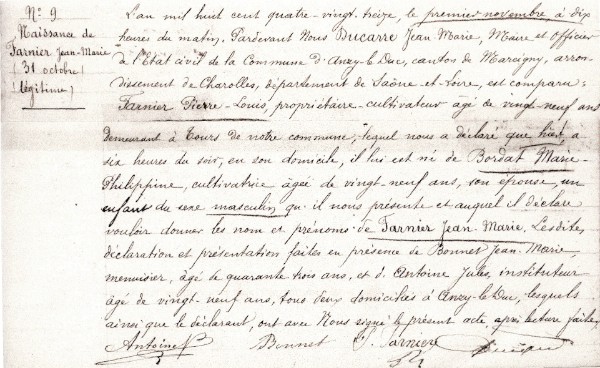 N° 9
Naissance de
Farnier Jean-Marie
(31 octobre)
(légitime)
L'an mil huit cent quatre-vingt-treize, le premier novembre à dix
heures du matin. Pardevant Nous Bucarre Jean Marie, Maire et Officier
de l'Etat civil de la Commune d'Anzy-le-Duc, canton de Marcigny, arron-
dissement de Charolles, département de Saône-et-Loire, est comparu:
Farnier Pierre-Louis, propriétaire-cultivateur âgé de vingt-neuf ans
demeurant à Tours de notre commune, lequel nous a déclaré que hier, à
six heures du soir, en son domicile, il lui est né de Bordat Marie-
Philippine, cultivatrice âgée de vingt-neuf ans, son épouse, un
enfant du sexe masculin qu'il nous présente et auquel il déclare
vouloir donner les nom et prénoms de Farnier Jean Marie. Lesdites
déclaration et présentation faites en présence de Bonnet Jean Marie,
menuisier, âgé de quarante trois ans, et d'Antoine Jules, instituteur
âgé de vingt-neuf ans, tous deux domiciliés à Anzy-le-Duc, lesquels
ainsi que le déclarant, ont avec Nous signé le présent acte, après lecture faite.
Antoine Bonnet Farnier Bucarre